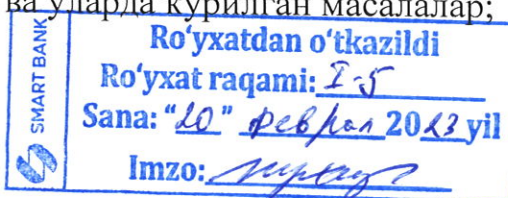 ва уларда кўрилган масалалар;
SMART BANK
Ro‘yxatdan o‘tkazildi
Ro‘yxat raqami: I-5
Sana: “20” феврал 2023 yil
Imzo: